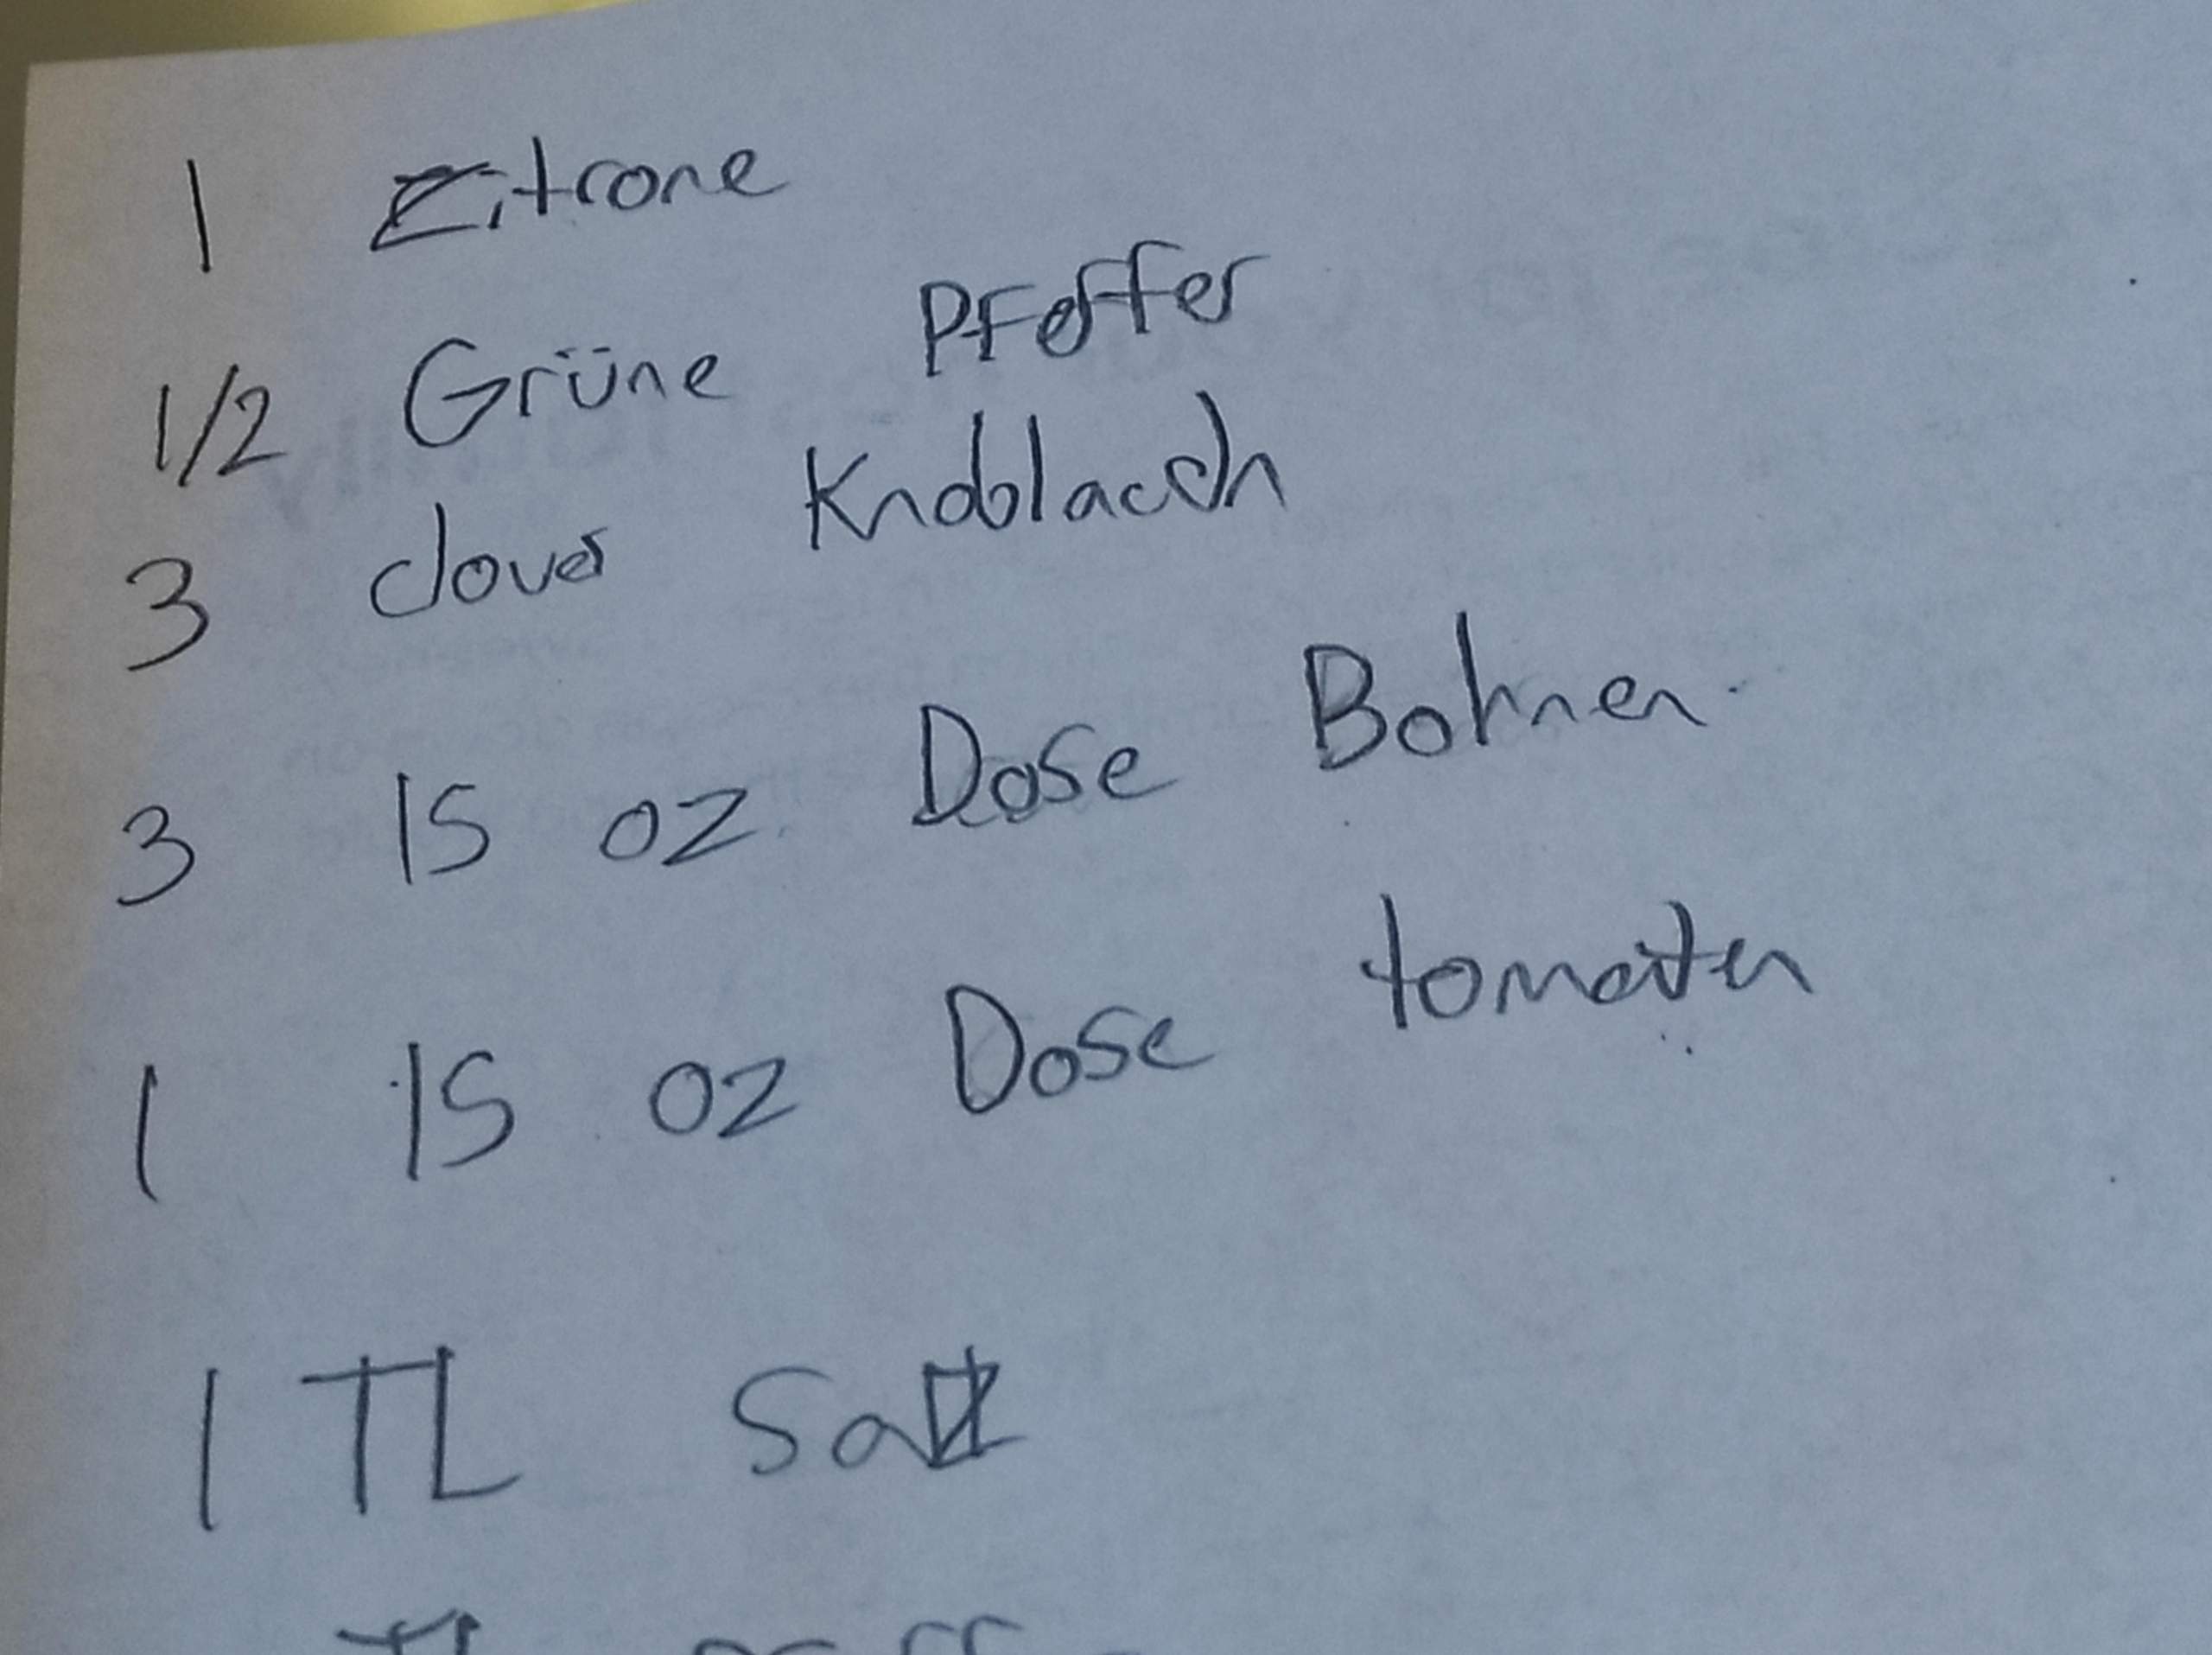 1 Zitrone
1/2 Grüne Pfeffer
3 cloves Knoblauch
3 15 oz Dose Bohnen
1 15 oz Dose tomaten
1 TL Salz